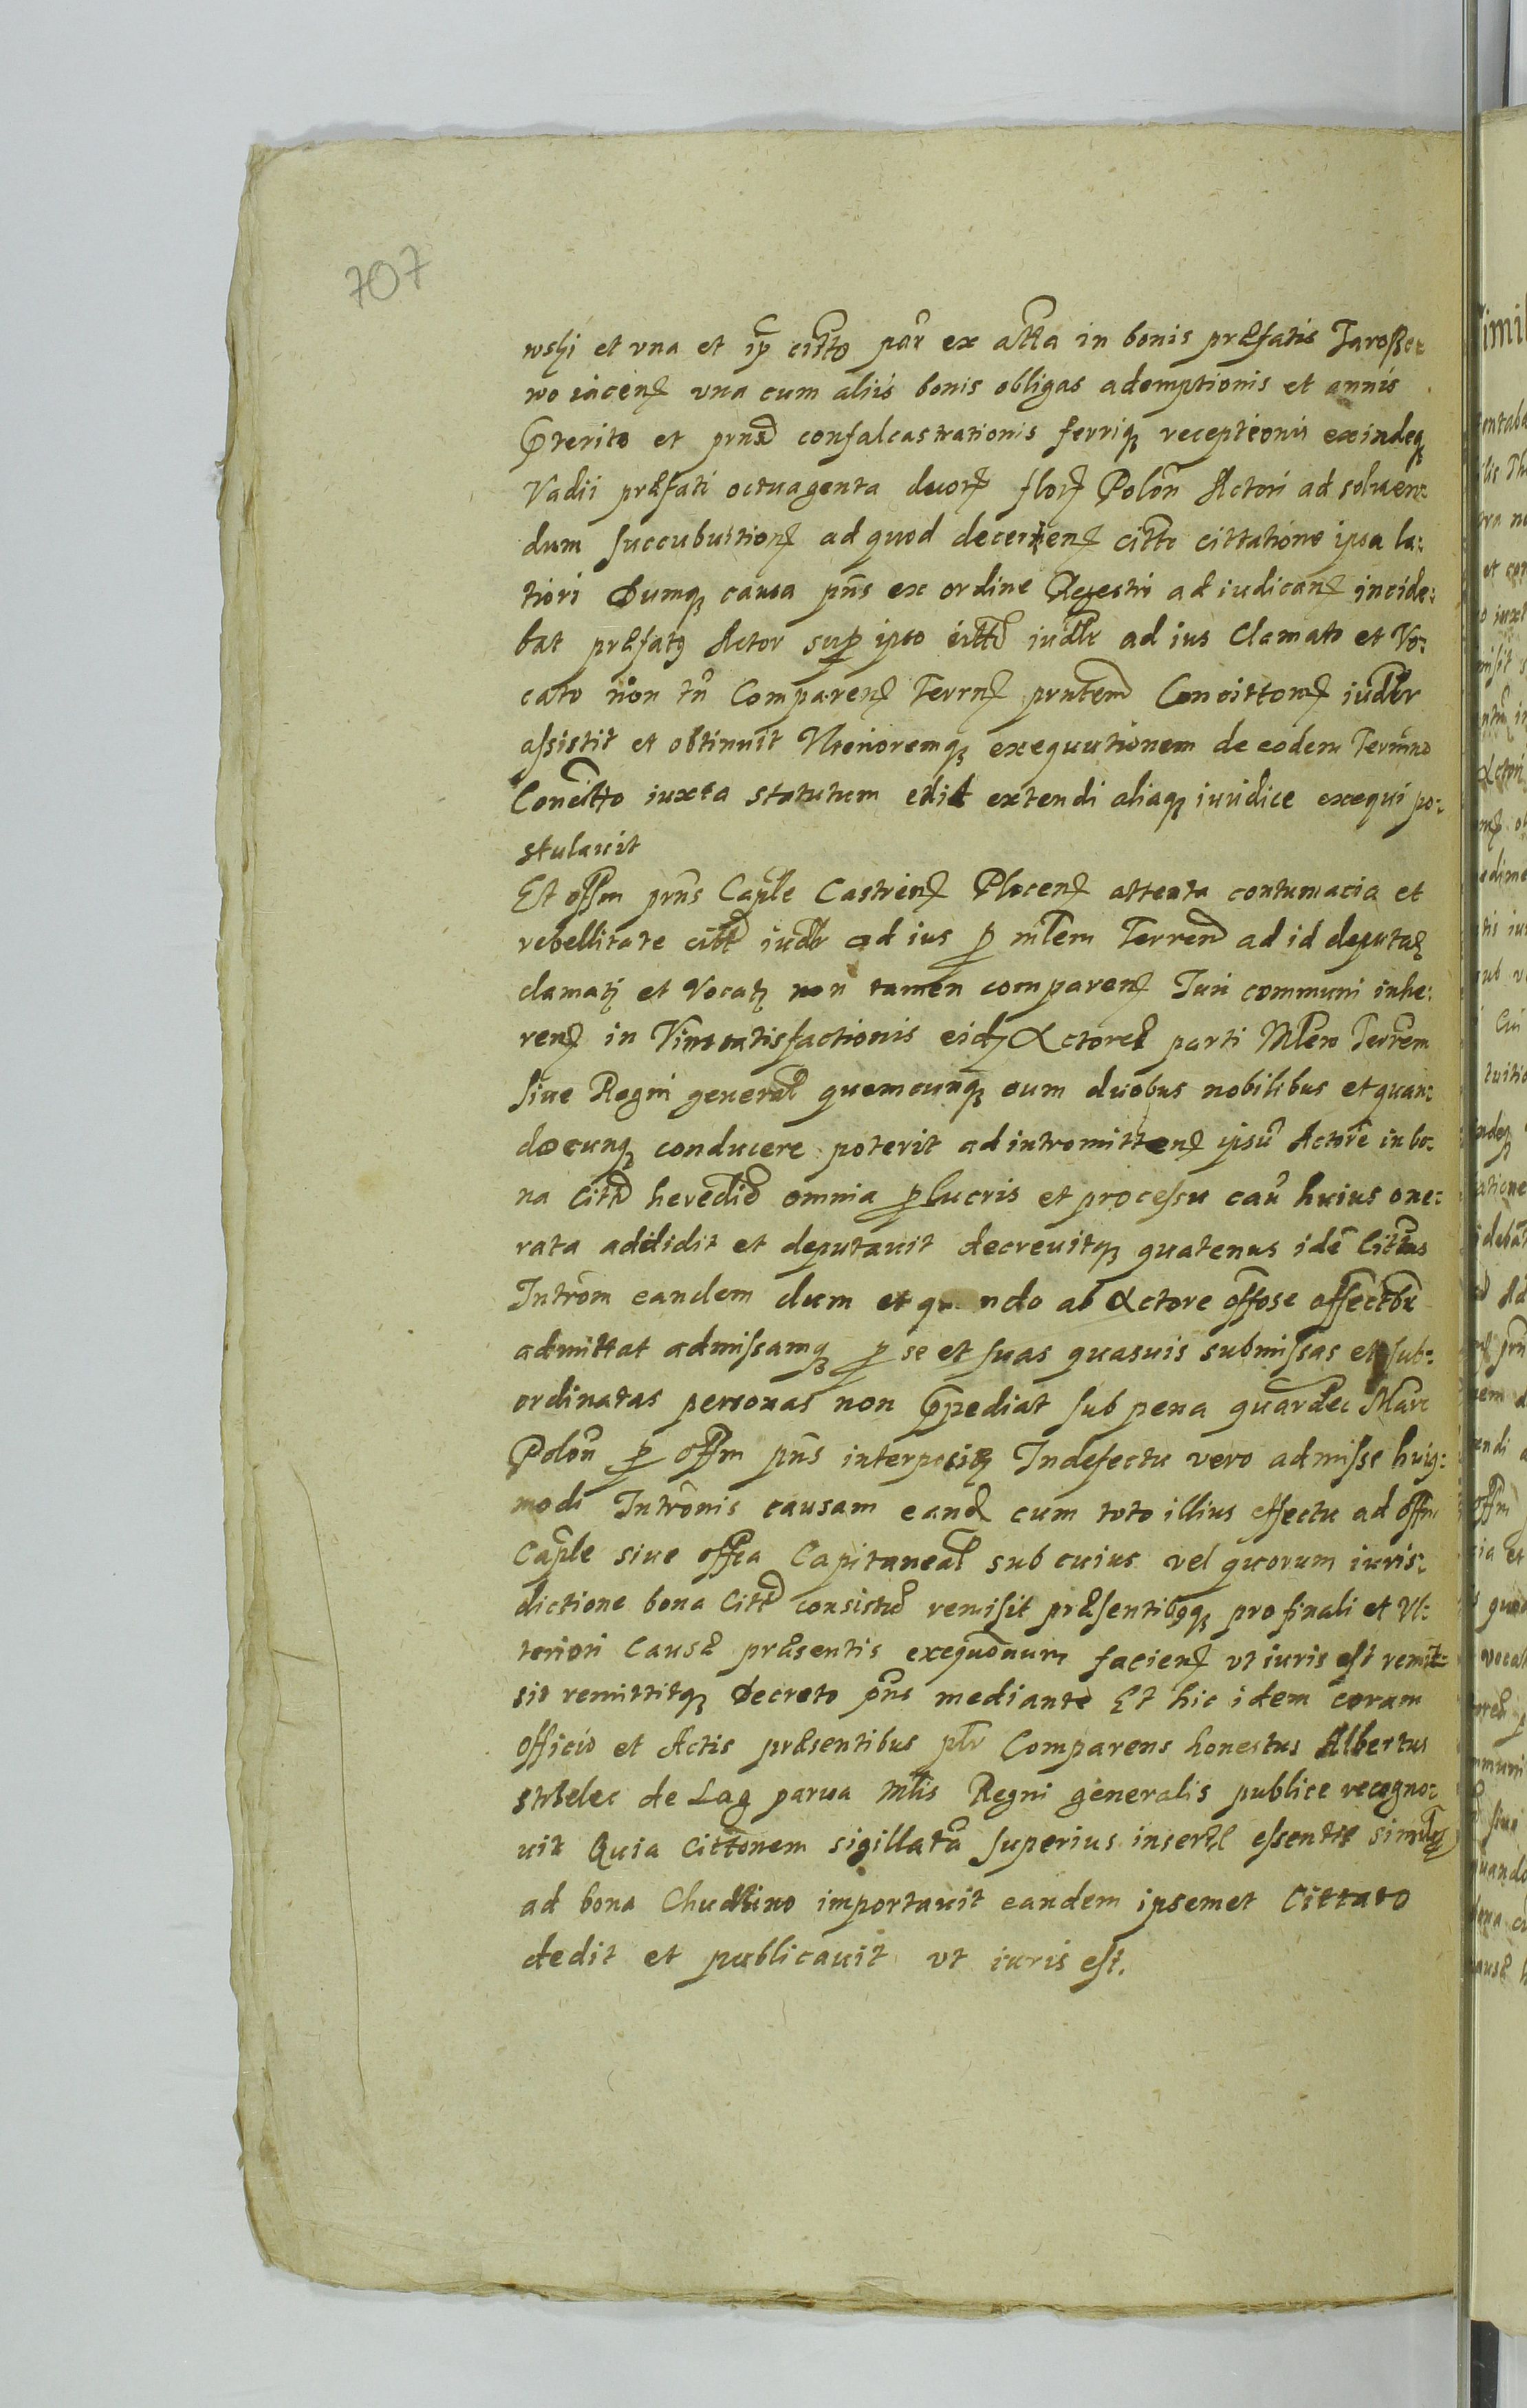 707
wskj et vna et ip citto par ex atta in bonis præfatis Jaroße
wo iacen vna cum aliis bonis obligas ademptionis et annis
Pterito et prnsd confalcastrationis ferriq receptionis exindeq
Vadii præfati octuagenta duor flor Polon Actori ad soluen:
dum succubuition ad quod decernen citto cittatione ipsa la:
tiori Dumq causa pns ex ordine Regestri ad iudican incide:
bat præfatq Actor sup ipso citto iudlr ad ius Clamato et Vo:
cato non tn Comparen Terrn prntem Concitton iudlr
assistit et obtinuit Vterioremq exequutionem de eodem Termino
Concitto iuxta statutum edi extendi aliaq iuridice exequi po:
stulauit
Et offm prns Caple Castren Plocen attenta contumacia et
rebellitate citt iudlr ad ius p mlem Terren ad id deputa
clamat et Vocat non tamen comparen Juri communi inhe:
ren in Vim satisfactionis eid Actore parti Mlem Terrem
siue Regni general quemcunq cum duobus nobilibus et quan:
docunq conducere poterit ad intromitten ipsu Actore in bo:
na Citt heredid omnia p lucris et processu cau huius one:
rata addidit et deputauit decreuitq quatenus ide Cittus
Introm eandem dum et ndo ab Actore offose affectbr
admittat admissamq p se et suas quasuis submissas et sub:
ordinatas personas non Ppediat sub pena quardec Marc
Polon p offm pns interposit Indefectu vero admisse huiq:
modi Intronis causam eand cum toto illius effectu ad offm
Caple siue offca Capitaneal sub cuius vel quorum iuris:
dictione bona Citt consistud remisit præsentibqq pro finali et Vl:
teriori Causæ præsentis exequonum facien vt iuris est remit=
sit remittitq Decreto pns mediante Et hic idem coram
officio et Actis præsentibus plr Comparens honestus Albertus
strzelec de Lag parua Mlis Regni generalis publice recogno:
uit Quia Cittonem sigillata superius insert essentie simil
ad bona Chudzino importauit eandem ipsemet Cittato
dedit et publicauit vt iuris est.